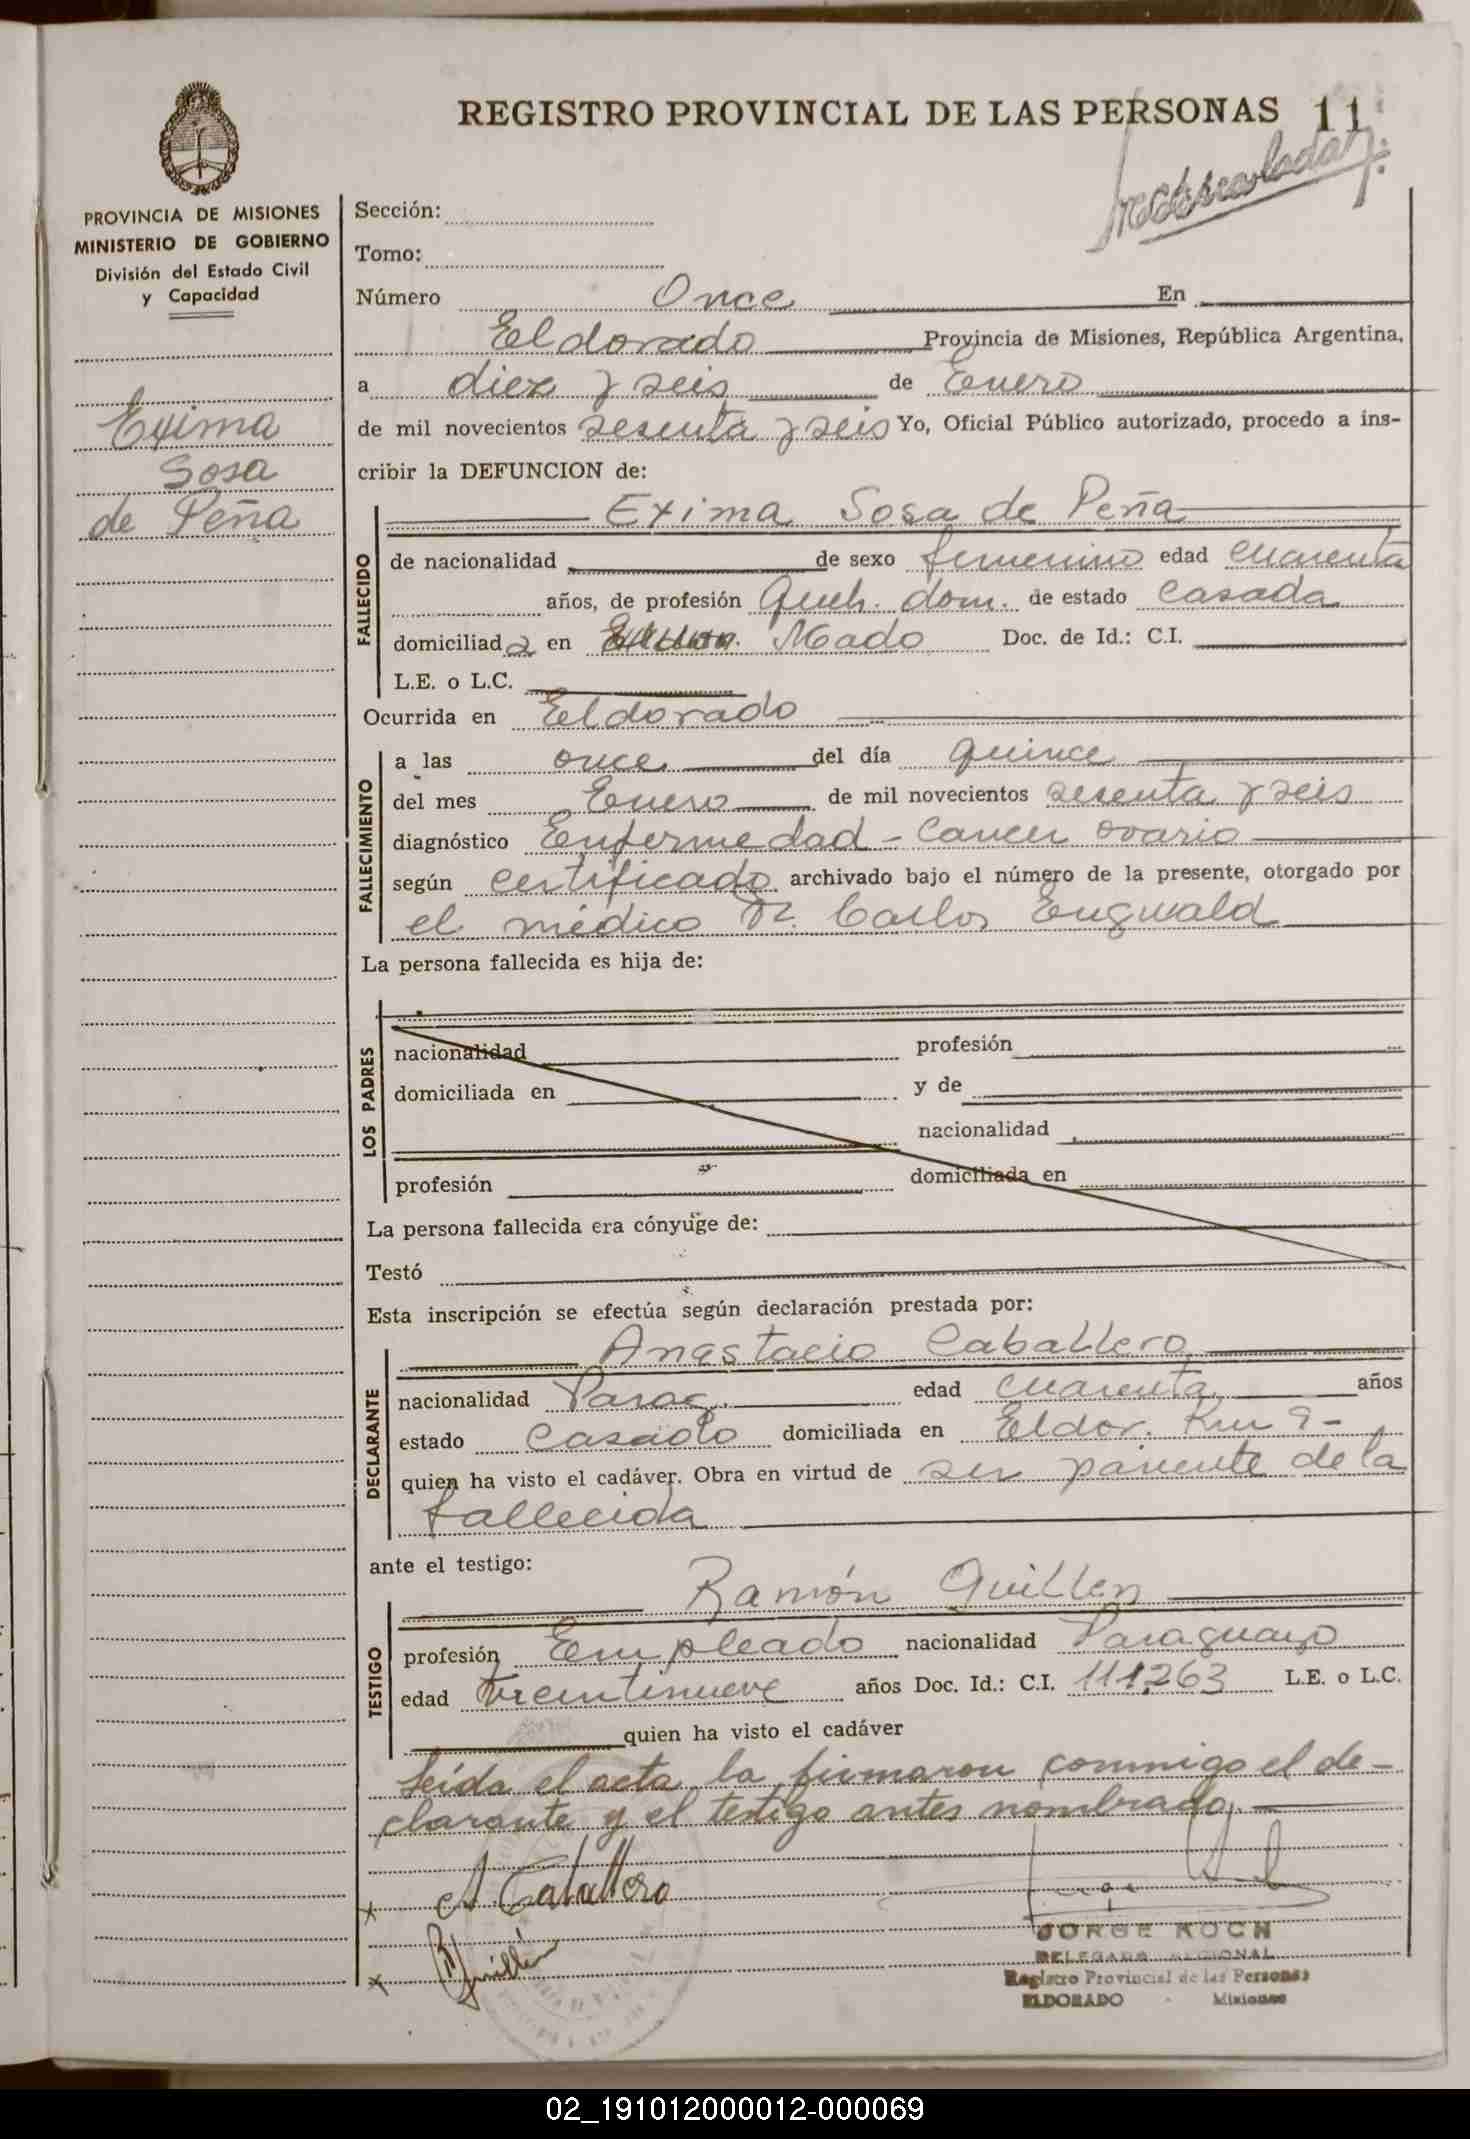 REGISTRO PROVINCIAL DE LAS PERSONAS 11
PROVINCIA DE MISIONES
MINISTERIO DE GOBIERNO
División del Estado Civil
y Capacidad
Exima
Sosa
de Peña
Sección:
Tomo:
Número Once En
Eldorado Provincia de Misiones, República Argentina,
a diez y seis de Enero
de mil novecientos sesenta y seis Yo, Oficial Público autorizado, procedo a ins-
cribir la DEFUNCION de:
FALLECIDO
Exima Sosa de Peña
de nacionalidad de sexo femenino edad cuarenta
años, de profesión Queh. dom. de estado casada
domiciliada en Mado Doc. de Id.: C.I.
L.E. o L.C.
Ocurrida en Eldorado
FALLECIMIENTO
a las once del día quince
del mes Enero de mil novecientos sesenta y seis
diagnóstico Enfermedad - Cancer ovario
según certificado archivado bajo el número de la presente, otorgado por
el médico Dr. Carlos Engwald
La persona fallecida es hija de:
LOS PADRES
nacionalidad profesión
domiciliada en y de
nacionalidad
profesión domiciliada en
La persona fallecida era cónyuge de:
Testó
Esta inscripción se efectúa según declaración prestada por:
DECLARANTE
Anastacio Caballero
nacionalidad Parag. edad cuarenta años
estado casado domiciliada en Eldor. Km 9-
quien ha visto el cadáver. Obra en virtud de ser pariente de la
fallecida
ante el testigo:
TESTIGO
Ramón Guillen
profesión Empleado nacionalidad Paraguayo
edad treintinueve años Doc. Id.: C.I. 111.263 L.E. o L.C.
quien ha visto el cadáver
Leída el acta, la firmaron conmigo el de-
clarante y el testigo antes nombrado.
x A Caballero
x R Guillén
JORGE KOCH
DELEGADO REGIONAL
Registro Provincial de las Personas
ELDORADO - Misiones
02_191012000012-000069